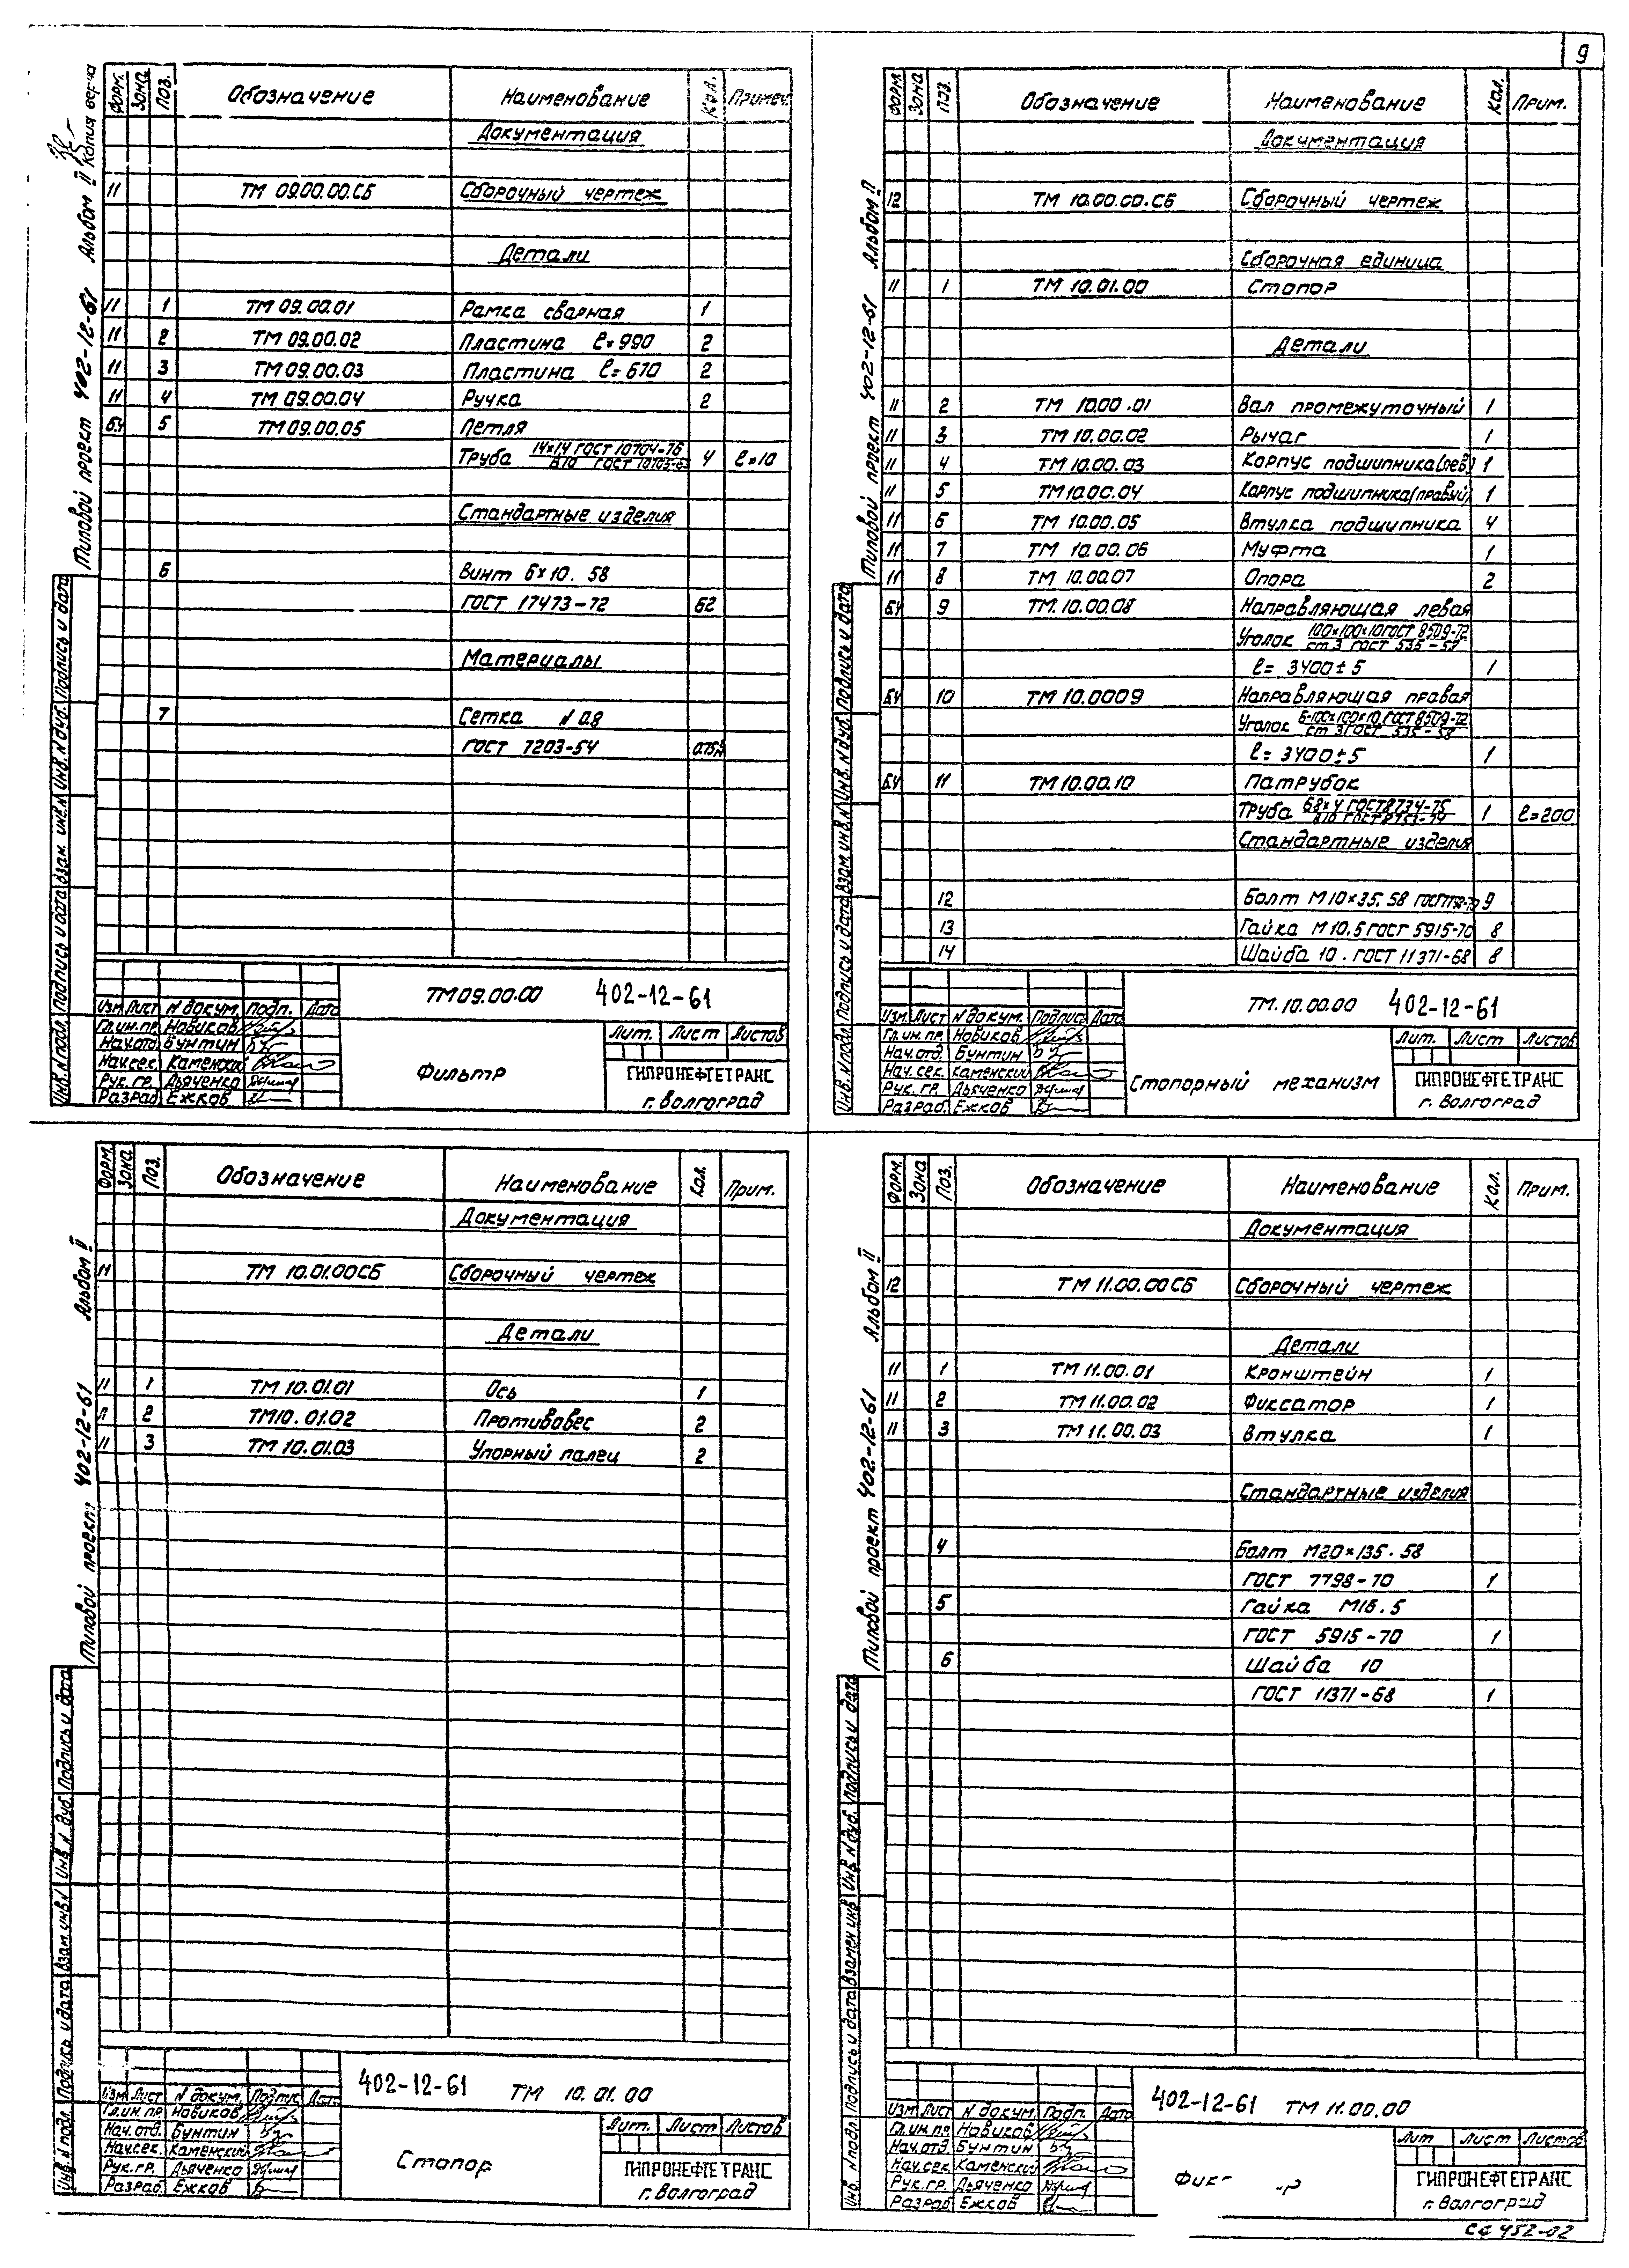 9
Копия верна
Типовой проект 402-12-61 Альбом II
Форм. Зона Поз. Обозначение Наименование Кол. Примеч.
Документация
11 ТМ 09.00.00.СБ Сборочный чертеж
Детали
11 1 ТМ 09.00.01 Рамка сварная 1
11 2 ТМ 09.00.02 Пластина ℓ=990 2
11 3 ТМ 09.00.03 Пластина ℓ=670 2
11 4 ТМ 09.00.04 Ручка 2
БЧ 5 ТМ 09.00.05 Петля
Труба 14×1,4 ГОСТ 10704-76 4 ℓ=10
Стандартные изделия
6 Винт 6×10.58
ГОСТ 17473-72 62
Материалы
7 Сетка N 0.8
ГОСТ 7203-54
Инв. N подл. Подпись и дата Взам. инв. N Инв. N дуб. Подпись и дата
ТМ 09.00.00 402-12-61
Изм. Лист N докум. Подп. Дата
Гл.ин.пр. Новиков
Нач.отд. Бунтин
Нач.сек. Каменский
Рук. гр. Дьяченко
Разраб. Ежков
Фильтр
Лит. Лист Листов
ГИПРОНЕФТЕТРАНС
г. Волгоград
Типовой проект 402-12-61 Альбом II
Форм. Зона Поз. Обозначение Наименование Кол. Прим.
Документация
12 ТМ 10.00.00.СБ Сборочный чертеж
Сборочная единица
11 1 ТМ 10.01.00 Стопор
Детали
11 2 ТМ 10.00.01 Вал промежуточный 1
11 3 ТМ 10.00.02 Рычаг 1
11 4 ТМ 10.00.03 Корпус подшипника (лев) 1
11 5 ТМ 10.00.04 Корпус подшипника (правый) 1
11 6 ТМ 10.00.05 Втулка подшипника 4
11 7 ТМ 10.00.06 Муфта 1
11 8 ТМ 10.00.07 Опора 2
БЧ 9 ТМ.10.00.08 Направляющая левая
Уголок 100×100×10 ГОСТ 8509-72
ст 3 ГОСТ 535-58
ℓ= 3400±5 1
БЧ 10 ТМ 10.0009 Направляющая правая
Уголок Б-100×100×10 ГОСТ 8509-72
ст 3 ГОСТ 535-58
ℓ= 3400±5 1
БЧ 11 ТМ 10.00.10 Патрубок
Труба 68×4 ГОСТ 8734-75 1 ℓ=200
Стандартные изделия
12 Болт М10×35.58 9
13 Гайка М10.5 ГОСТ 5915-70 8
14 Шайба 10. ГОСТ 11371-68 8
Инв. N подл. Подпись и дата Взам. инв. N Инв. N дуб. Подпись и дата
ТМ.10.00.00 402-12-61
Изм. Лист N докум. Подпись Дата
Гл.ин.пр. Новиков
Нач.отд. Бунтин
Нач.сек. Каменский
Рук. гр. Дьяченко
Разраб. Ежков
Стопорный механизм
Лит. Лист Листов
ГИПРОНЕФТЕТРАНС
г. Волгоград
Типовой проект 402-12-61 Альбом II
Форм. Зона Поз. Обозначение Наименование Кол. Прим.
Документация
11 ТМ 10.01.00СБ Сборочный чертеж
Детали
11 1 ТМ 10.01.01 Ось 1
11 2 ТМ10.01.02 Противовес 2
11 3 ТМ 10.01.03 Упорный палец 2
Инв. N подл. Подпись и дата Взам. инв. N Инв. N дуб. Подпись и дата
402-12-61 ТМ 10.01.00
Изм Лист N докум. Подпис Дата
Гл.ин.пр. Новиков
Нач.отд. Бунтин
Нач.сек. Каменский
Рук.гр. Дьяченко
Разраб. Ежков
Стопор
Лит. Лист Листов
ГИПРОНЕФТЕТРАНС
г. Волгоград
Типовой проект 402-12-61 Альбом II
Форм. Зона Поз. Обозначение Наименование Кол. Прим.
Документация
12 ТМ 11.00.00СБ Сборочный чертеж
Детали
11 1 ТМ 11.00.01 Кронштейн 1
11 2 ТМ 11.00.02 Фиксатор 1
11 3 ТМ 11.00.03 Втулка 1
Стандартные изделия
4 Болт М20×135.58
ГОСТ 7798-70 1
5 Гайка М16.5
ГОСТ 5915-70 1
6 Шайба 10
ГОСТ 11371-68 1
Инв. N подл. Подпись и дата Взамен инв Инв N дуб. Подпись и дата
402-12-61 ТМ 11.00.00
Изм Лист N докум. Подп. Дата
Гл.ин.пр. Новиков
Нач.отд. Бунтин
Нач.сек. Каменский
Рук.гр. Дьяченко
Разраб Ежков
Лит Лист Листов
ГИПРОНЕФТЕТРАНС
г. Волгоград
СФ 452-02